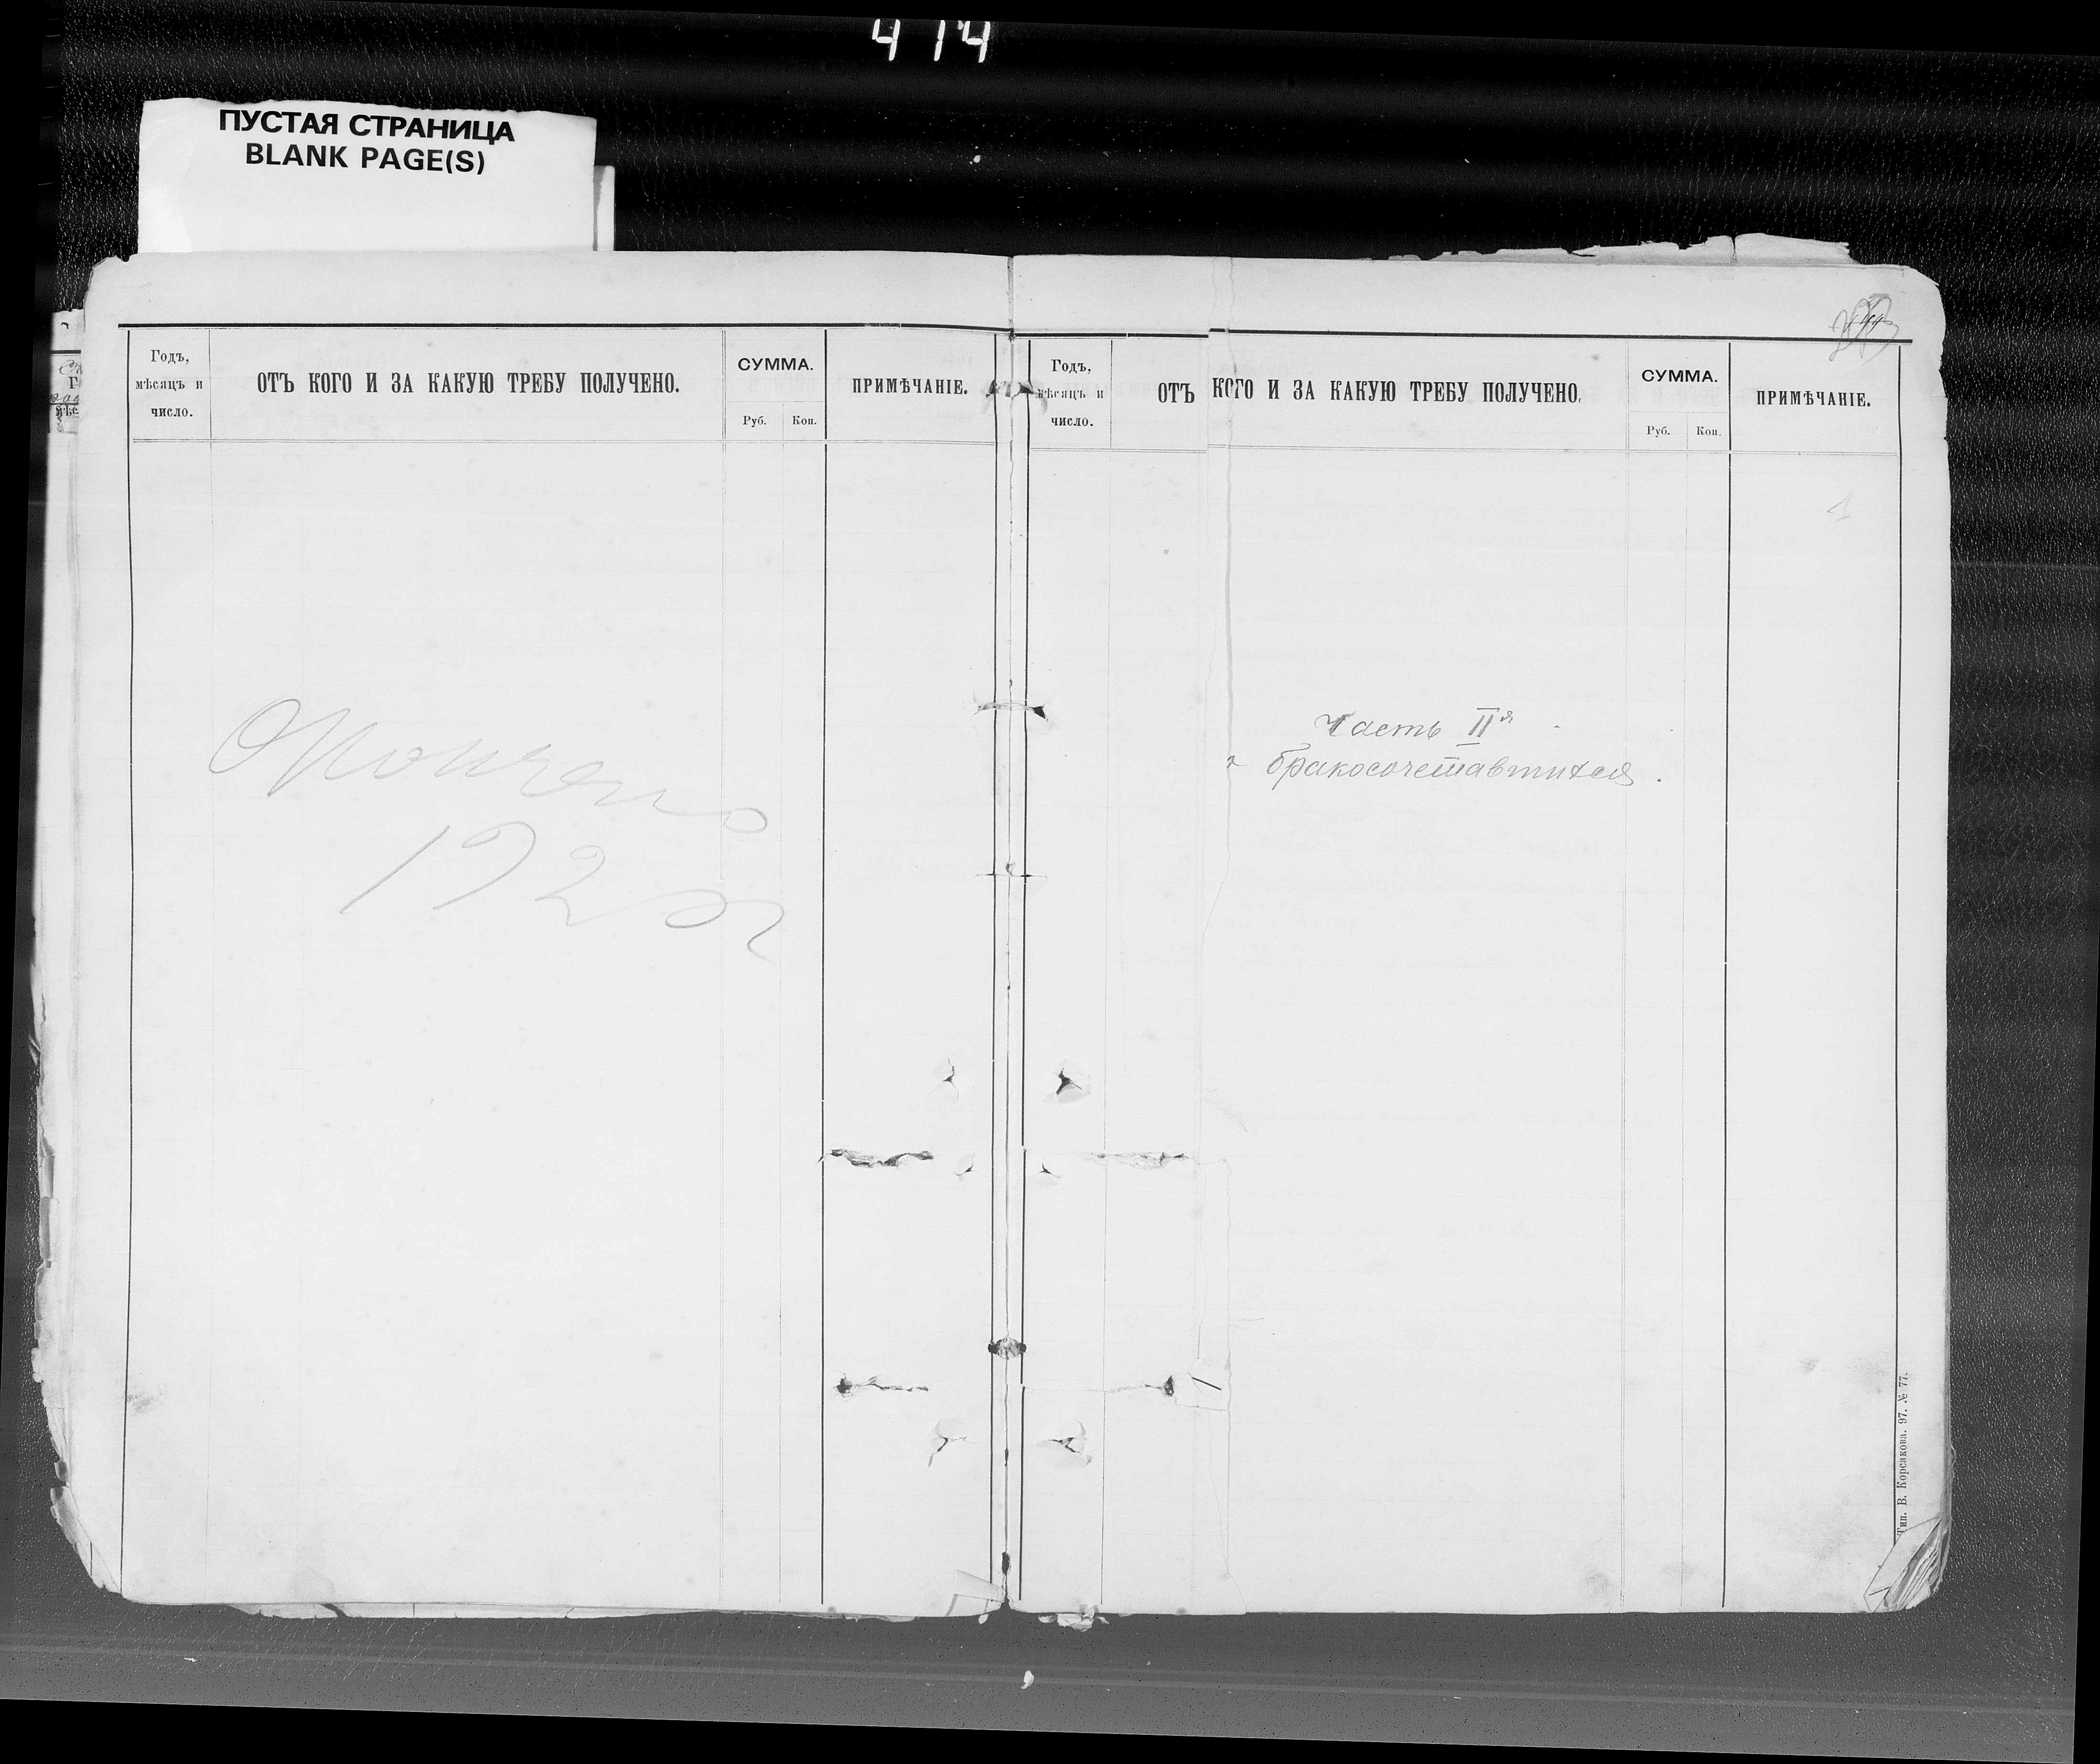 414
ПУСТАЯ СТРАНИЦА
BLANK PAGE(S)
Годъ,
мѣсяцъ и
число.
ОТЪ КОГО И ЗА КАКУЮ ТРЕБУ ПОЛУЧЕНО.
СУММА.
Руб. Коп.
ПРИМѢЧАНІЕ.
192
Годъ,
мѣсяцъ и
число.
ОТЪ КОГО И ЗА КАКУЮ ТРЕБУ ПОЛУЧЕНО.
СУММА.
Руб. Коп.
ПРИМѢЧАНІЕ.
Часть IIя
бракосочетавшихся.
Тип. В. Корсакова. 97. № 77.